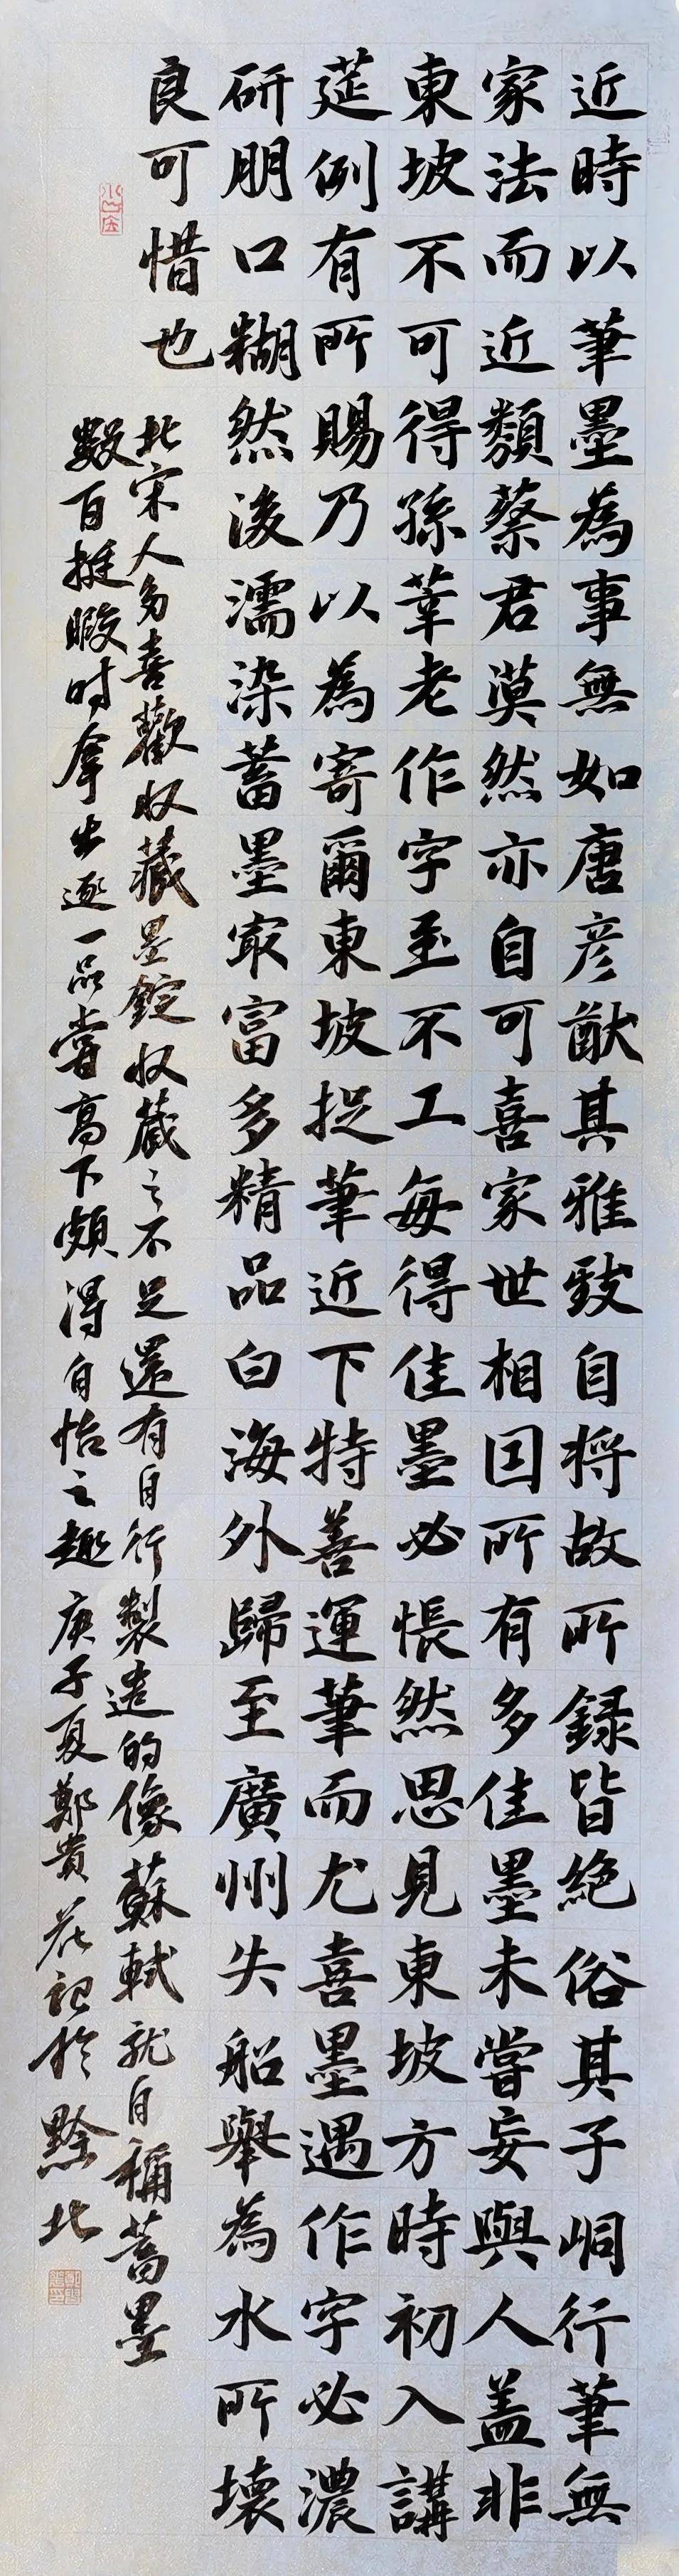 近時以筆墨為事無如唐彦猷其雅致自将故所録皆絶俗其子峒行筆無
家法而近類蔡君漠然亦自可喜家世相因所有多佳墨未嘗妄與人蓋非
東坡不可得孫莘老作字至不工每得佳墨必悵然思見東坡方時初入講
莚例有所賜乃以為寄爾東坡捉筆近下特善運筆而尤喜墨遇作字必濃
研朋口糊然後濡染蓄墨最富多精品白海外歸至廣州失船舉為水所壞
良可惜也
北宋人多喜歡收藏墨錠收藏之不足還有自行製造的像蘇軾就自稱蓄墨
數百挺暇时拿出逐一品嘗高下頗得自怡之趣庚子夏鄭貴花記於黔北